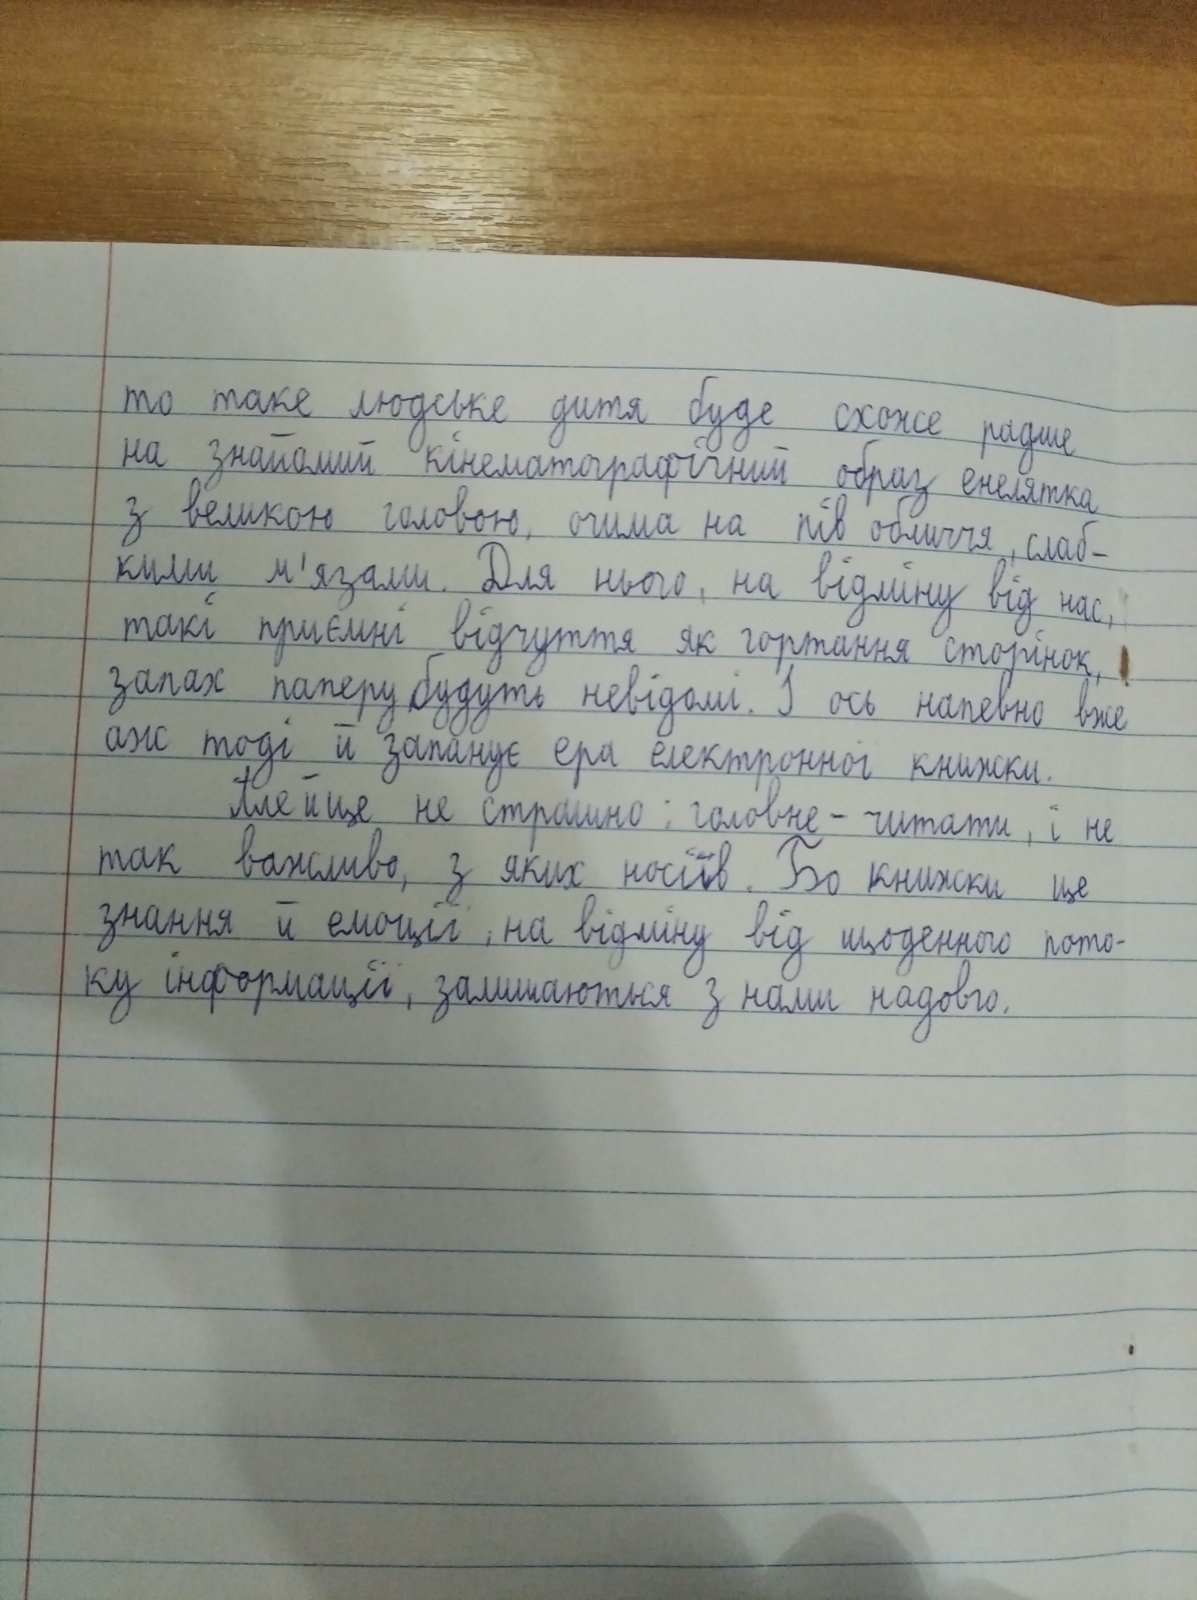 то таке людське дитя буде схоже радше
на знайомий кінематографічний образ енелятка
з великою головою, очима на пів обличчя, слаб-
кими м'язами. Для нього, на відміну від нас,
такі приємні відчуття як гортання сторінок,
запах паперу будуть невідомі. І ось напевно вже
аж тоді й запанує ера електронної книжки.
Але й це не страшно: головне – читати, і не
так важливо, з яких носіїв. Бо книжки це
знання й емоції, на відміну від щоденного пото-
ку інформації, залишаються з нами надовго.